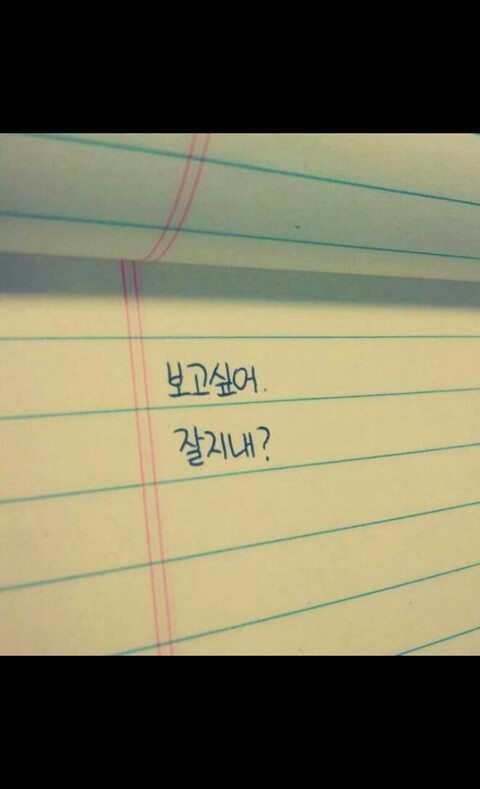 보고싶어.
잘지내?